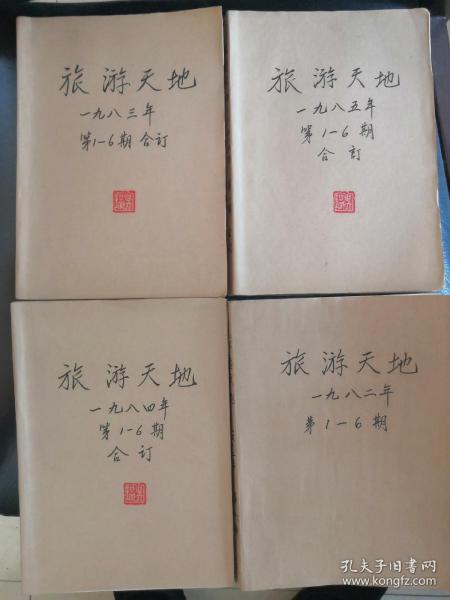 旅游天地
一九八三年
第1-6期合订
旅游天地
一九八五年
第1-6期
合訂
旅游天地
一九八四年
第1-6期
合订
旅游天地
一九八二年
第1-6期
孔夫子旧书网
www.kongfz.com